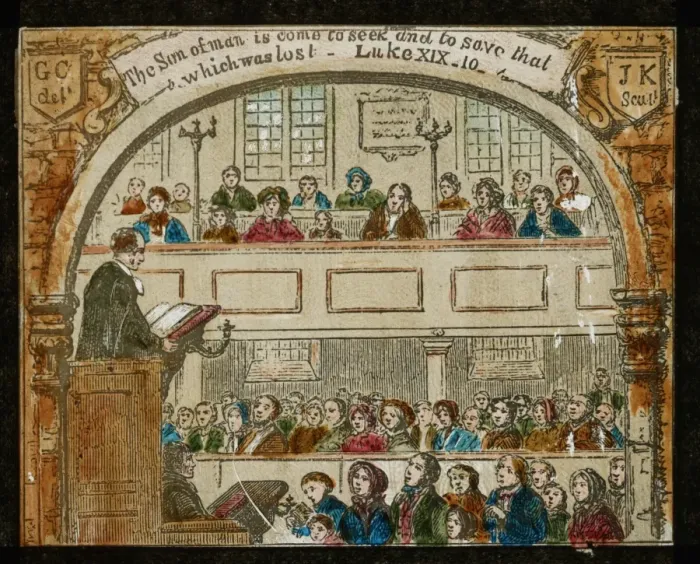 The Son of man is come to seek and to save that
which was lost - Luke XIX. 10
G C
delt
J K
Sculpt